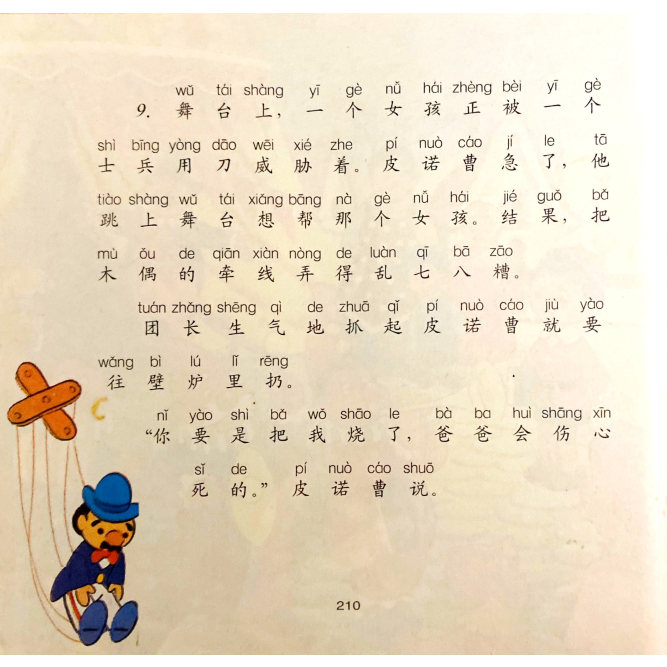 wǔ tái shàng yī gè nǚ hái zhèng bèi yī gè
9. 舞台上，一个女孩正被一个
shì bīng yòng dāo wēi xié zhe pí nuò cáo jí le tā
士兵用刀威胁着。皮诺曹急了，他
tiào shàng wǔ tái xiǎng bāng nà gè nǚ hái jié guǒ bǎ
跳上舞台想帮那个女孩。结果，把
mù ǒu de qiān xiàn nòng de luàn qī bā zāo
木偶的牵线弄得乱七八糟。
tuán zhǎng shēng qì de zhuā qǐ pí nuò cáo jiù yào
团长生气地抓起皮诺曹就要
wǎng bì lú lǐ rēng
往壁炉里扔。
nǐ yào shì bǎ wǒ shāo le bà ba huì shāng xīn
“你要是把我烧了，爸爸会伤心
sǐ de pí nuò cáo shuō
死的。”皮诺曹说。
210